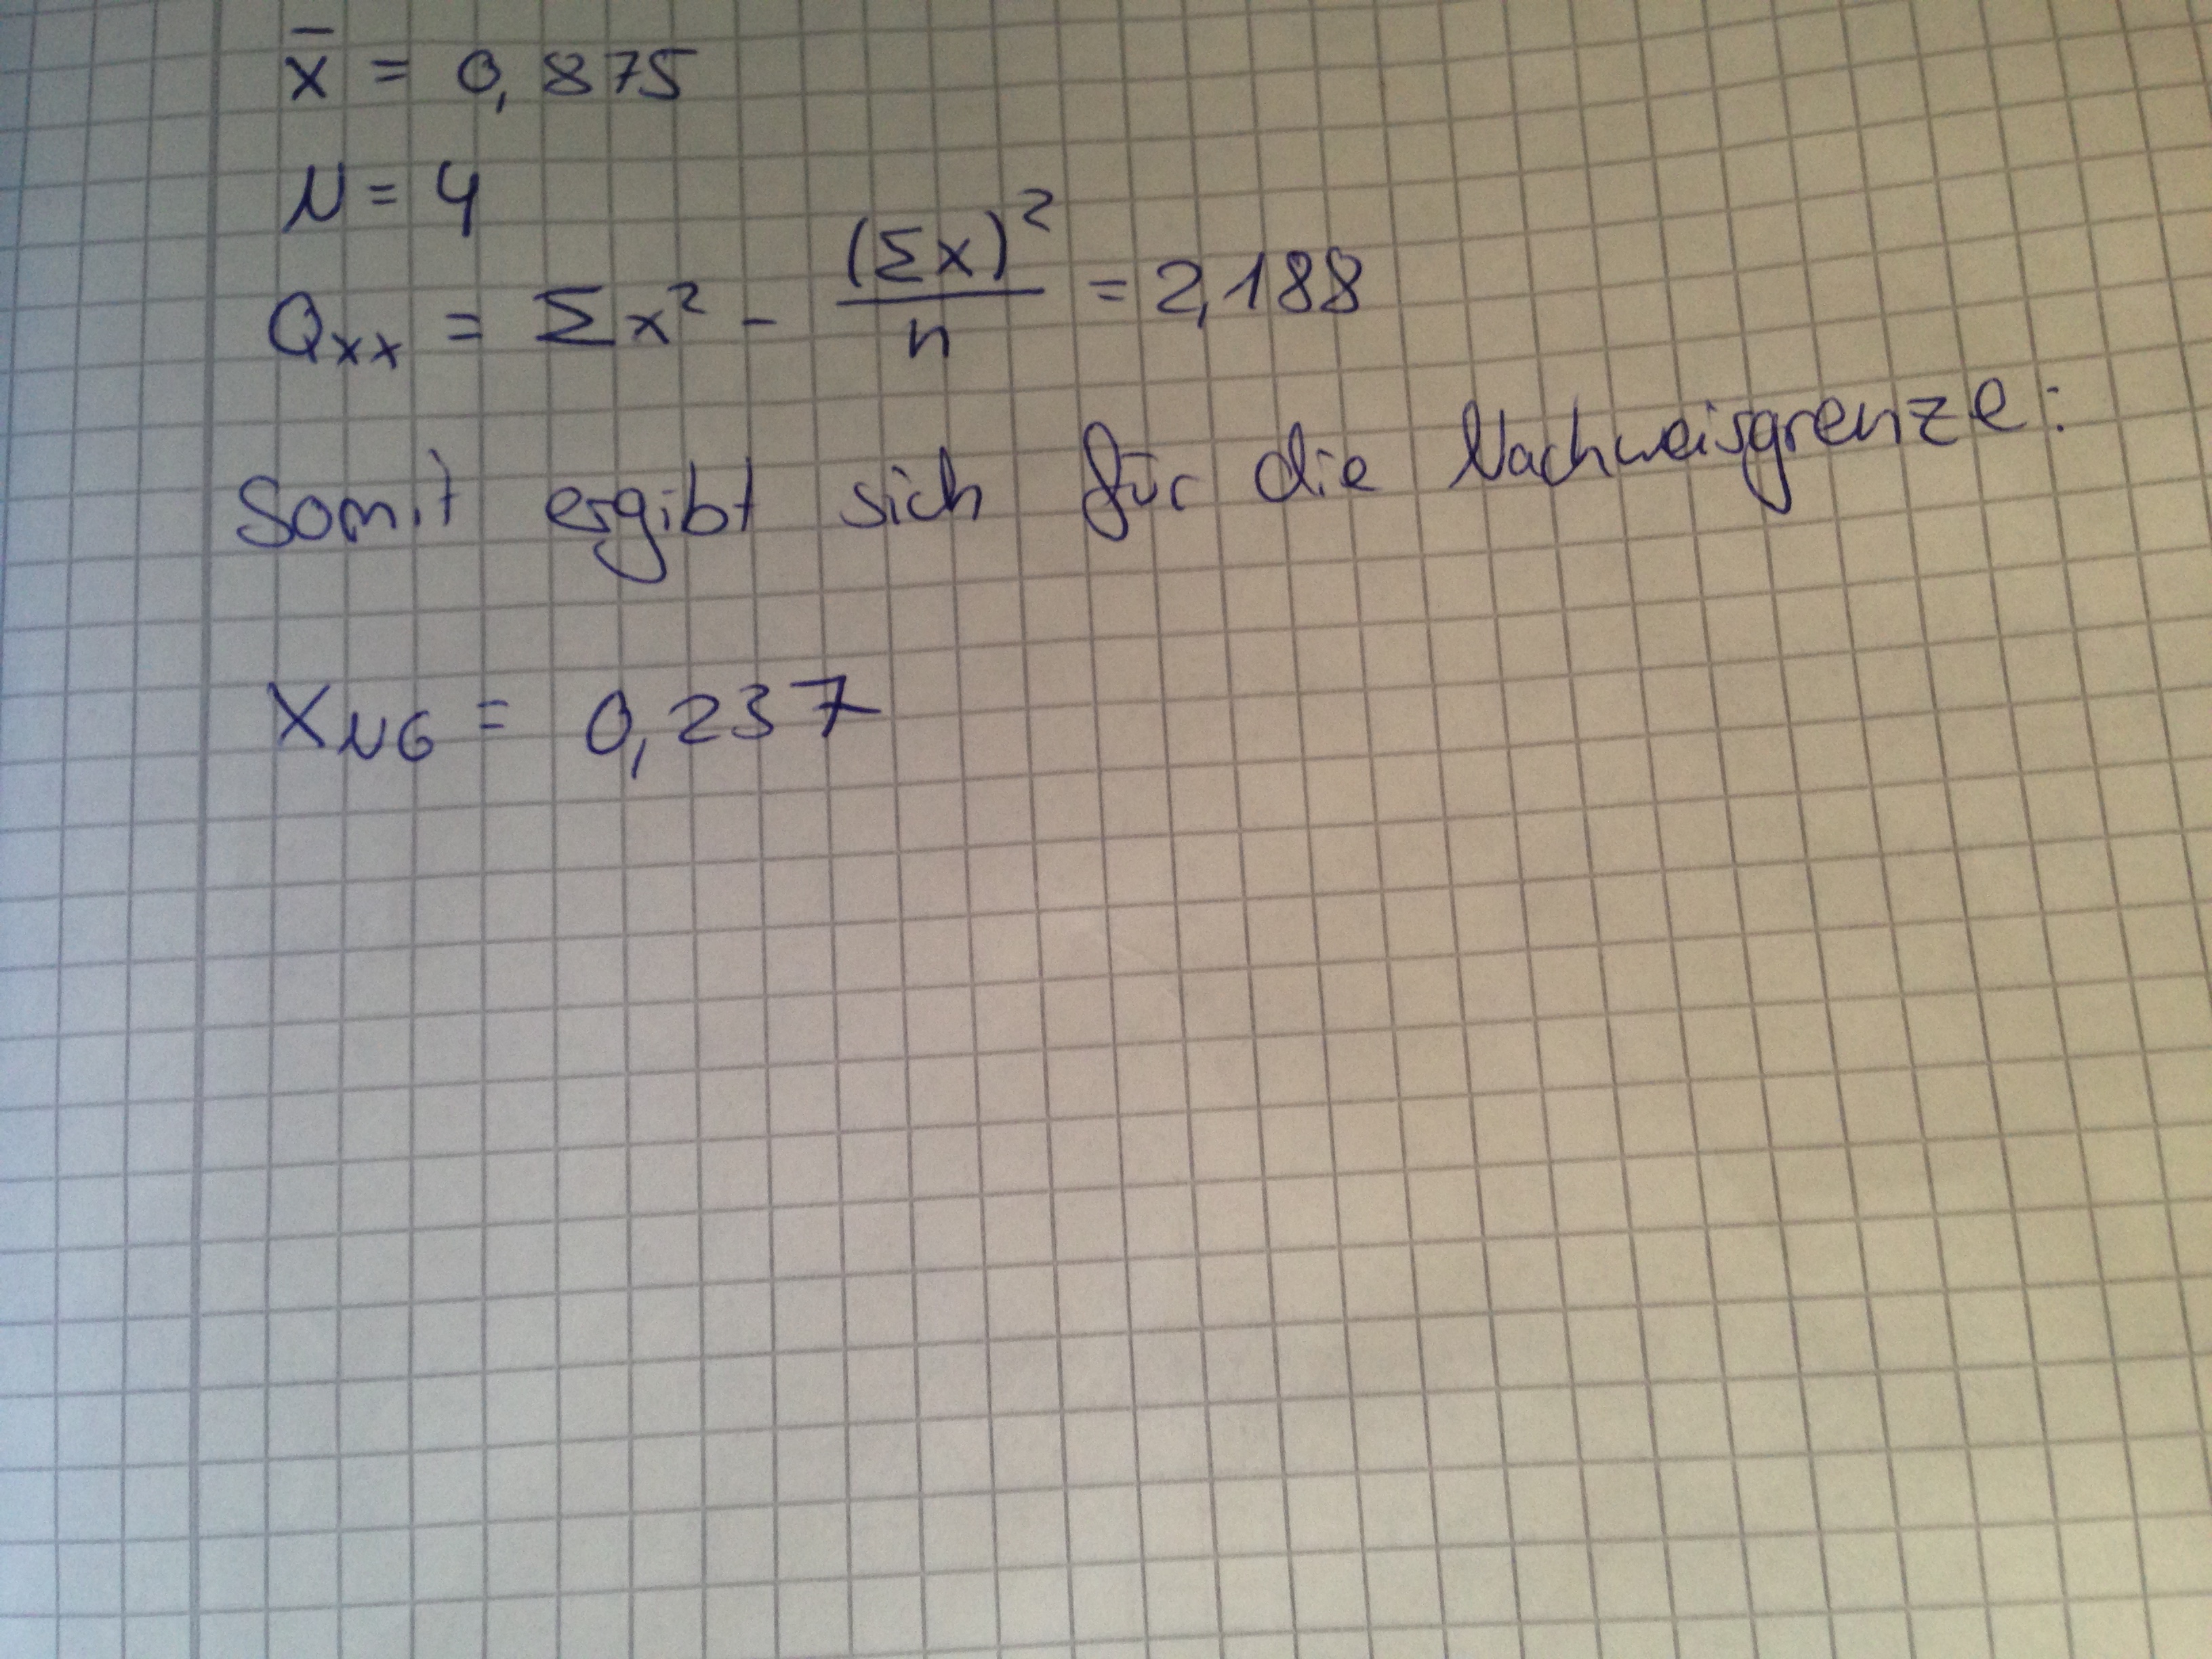 x̄ = 0,875
N = 4
Qxx = Σx² - (Σx)²/n = 2,188
Somit ergibt sich für die Nachweisgrenze:
XNG = 0,237